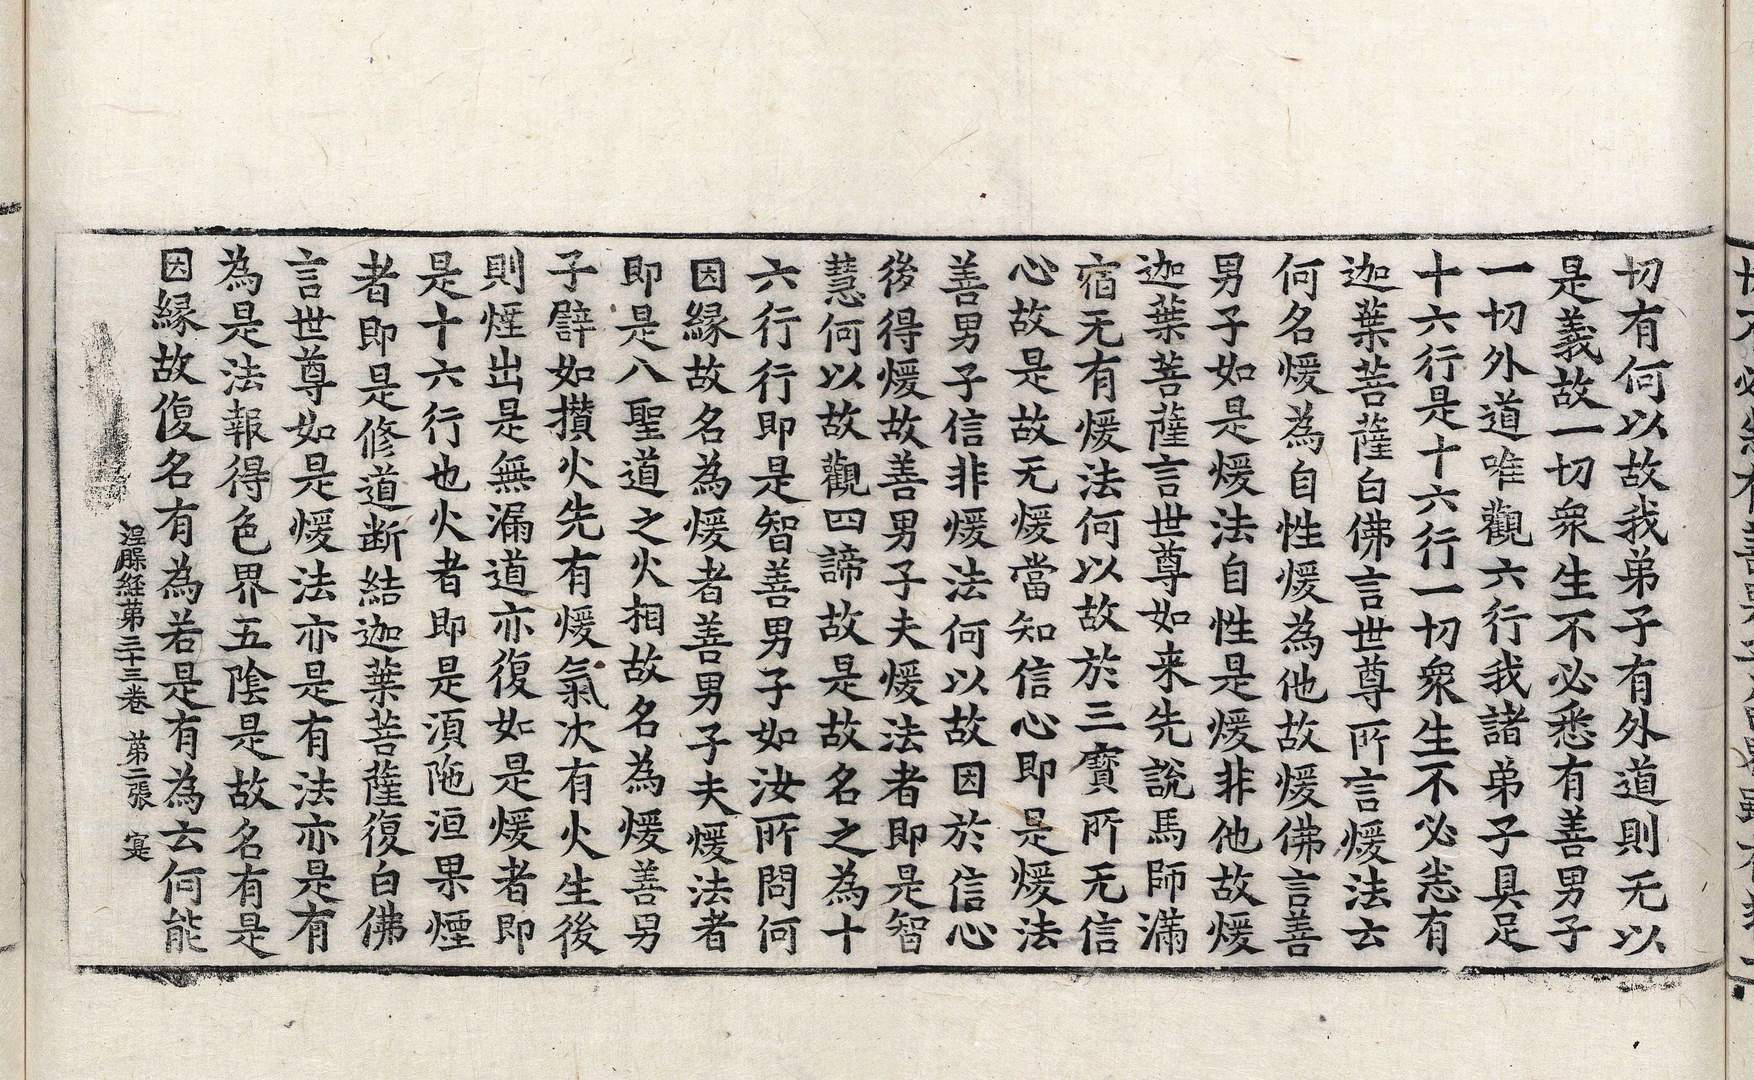 切有何以故我弟子有外道則无以
是義故一切衆生不必悉有善男子
一切外道唯觀六行我諸弟子具足
十六行是十六行一切衆生不必悉有
迦葉菩薩白佛言世尊所言煖法云
何名煖為自性煖為他故煖佛言善
男子如是煖法自性是煖非他故煖
迦葉菩薩言世尊如来先說馬師滿
宿无有煖法何以故於三寶所无信
心故是故无煖當知信心即是煖法
善男子信非煖法何以故因於信心
後得煖故善男子夫煖法者即是智
慧何以故觀四諦故是故名之為十
六行行即是智善男子如汝所問何
因縁故名為煖者善男子夫煖法者
即是八聖道之火相故名為煖善男
子譬如攅火先有煖氣次有火生後
則煙出是無漏道亦復如是煖者即
是十六行也火者即是湏陁洹果煙
者即是修道断結迦葉菩薩復白佛
言世尊如是煖法亦是有法亦是有
為是法報得色界五陰是故名有是
因縁故復名有為若是有為云何能
涅槃経苐三十三卷 苐二張 寔